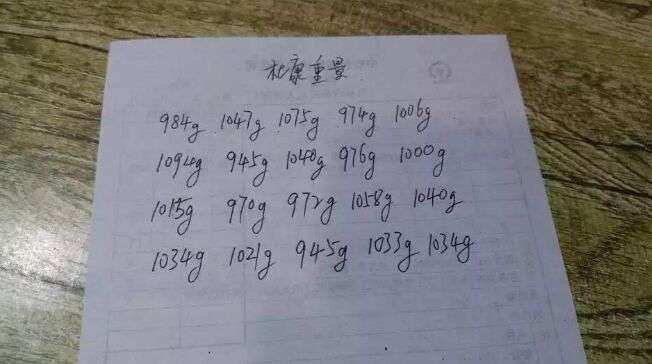 杜康重量
984g 1047g 1075g 974g 1006g
1094g 945g 1040g 976g 1000g
1015g 970g 972g 1058g 1040g
1034g 1021g 945g 1033g 1034g